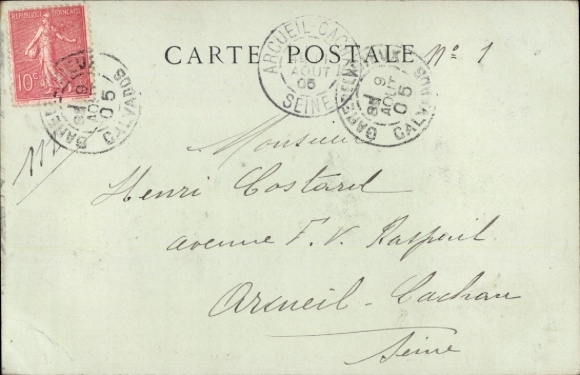 REPUBLIQUE FRANÇAISE
10c
CARTE POSTALE No 1
ARCUEIL-CACHAN
AOUT
05
SEINE
9
AOUT
05
CALVADOS
9
AOUT
05
CALVADOS
Monsieur
Henri Costard
avenue F. V. Raspail
Arcueil-Cachan
Seine